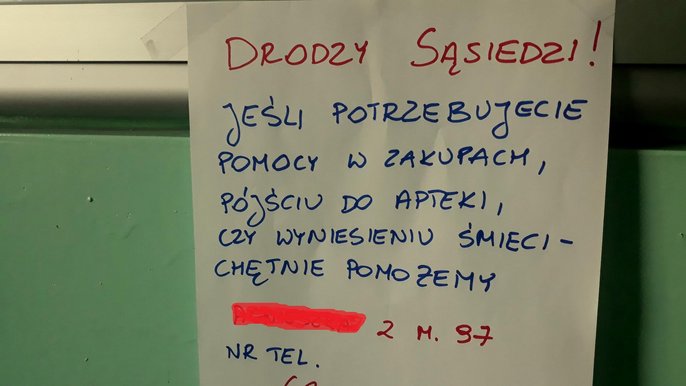 DRODZY SĄSIEDZI!
JEŚLI POTRZEBUJECIE
POMOCY W ZAKUPACH,
PÓJŚCIU DO APTEKI,
CZY WYNIESIENIU ŚMIECI -
CHĘTNIE POMOŻEMY
Z M. 97
NR TEL.